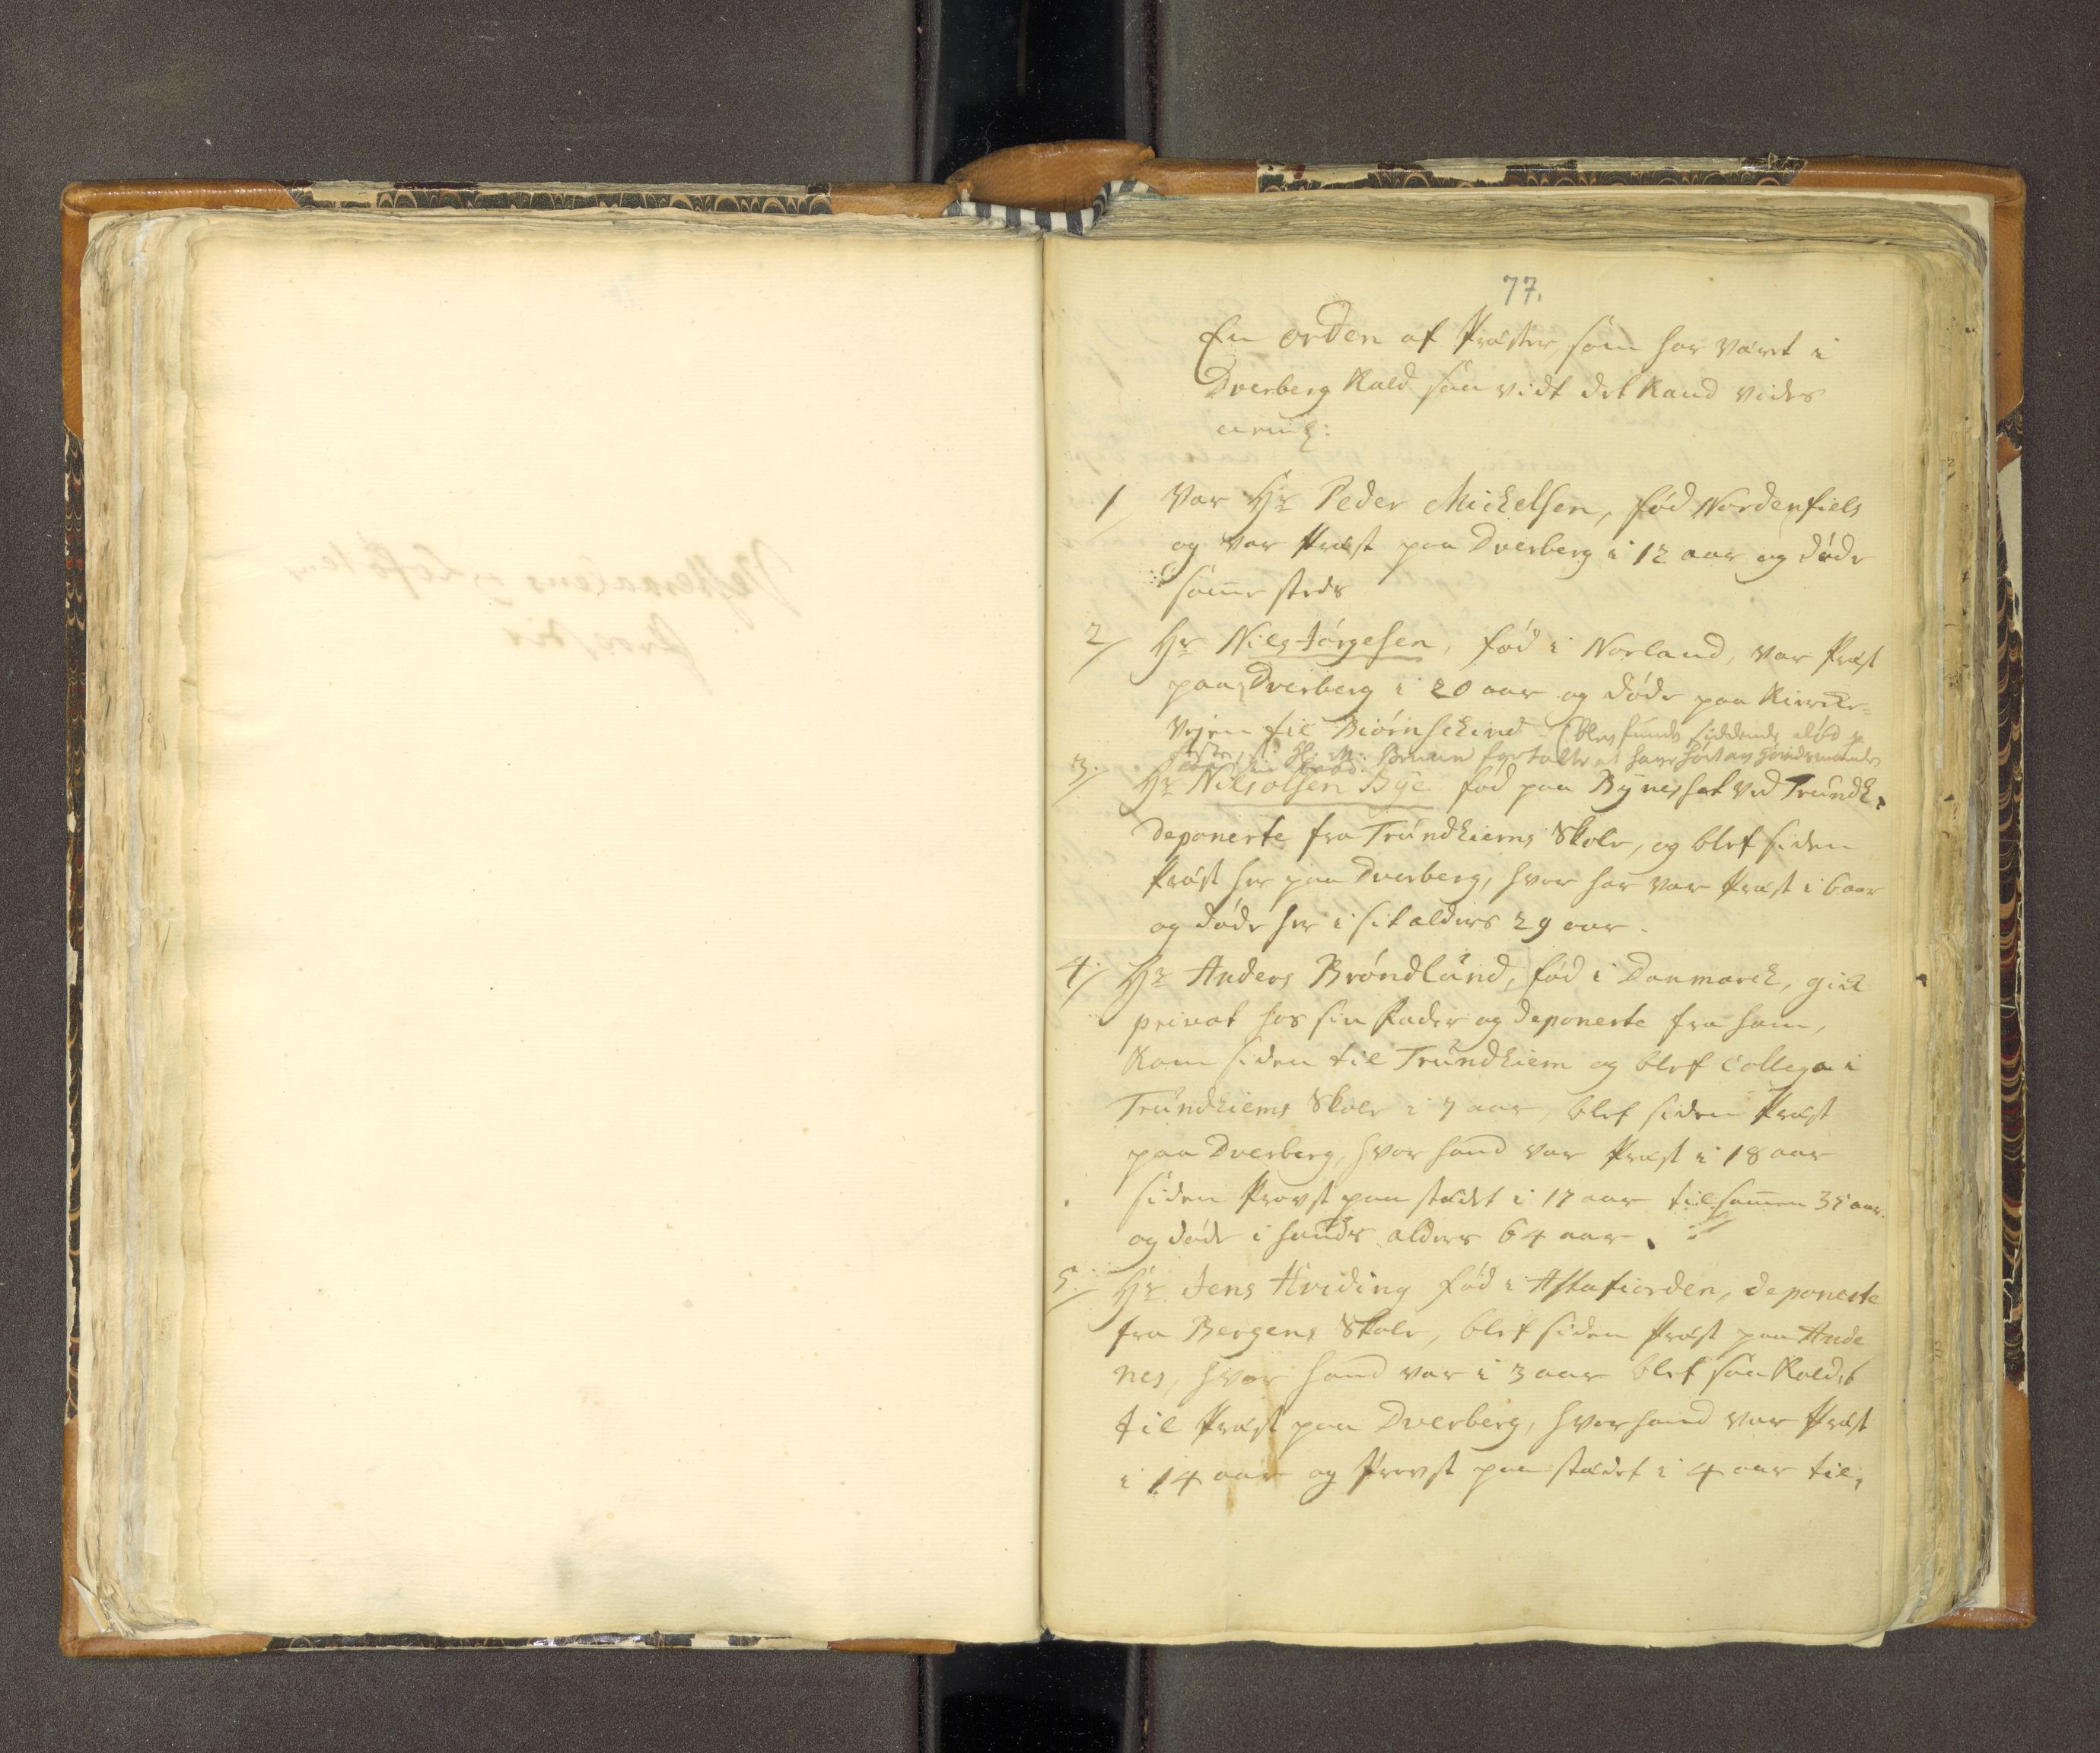 77.
En orden af Præster som har været i
Dverberg Kald saa vidt det kand vides
1 Var Hr Peder Mickelsen, fød Nordenfiels
og var Præst paa Dverberg i 12 aar og døde
samme steds
2/ Hr Nils Jørgesen, fød i Norland, var Præst
paa Dverberg i 20 aar og døde paa Kircke=
Vejen til Biørnschind (blev funde siddende død
Hr. M. Bruun fortalte at have hørt av
3./ Hr Nils olsen Bye fød paa Bynesset ved Trundh.
deponerte fra Trundhiems Skole, og blef siden
Præst her paa Dverberg, hvor har var Præst i 6 aar
og døde her i sit alders 29 aar.
4./ Hr Anders Brøndlund, fød i Danmarck, gick
privat hos sin Fader og deponerte fra ham,
Kom siden til Trundhiem og blef Collega i
Trundhiems Skole i 7 aar, blef siden Præst
paa Dverberg, hvor hand var Præst i 18 aar
siden Provst paa stædet i 17 aar tilsammen 35 aar.
og døde i hands alders 64 aar.
5./ Hr Jens Hviding fød i Astafiorden, deponerte
fra Bergens Skole, blef siden Præst paa Ande
nes, hvor hand var i 3 aar blef saa Kaldet
til Præst paa Dverberg, hvor hand var Præst
i 14 aar og Provst paa stædet i 4 aar til,